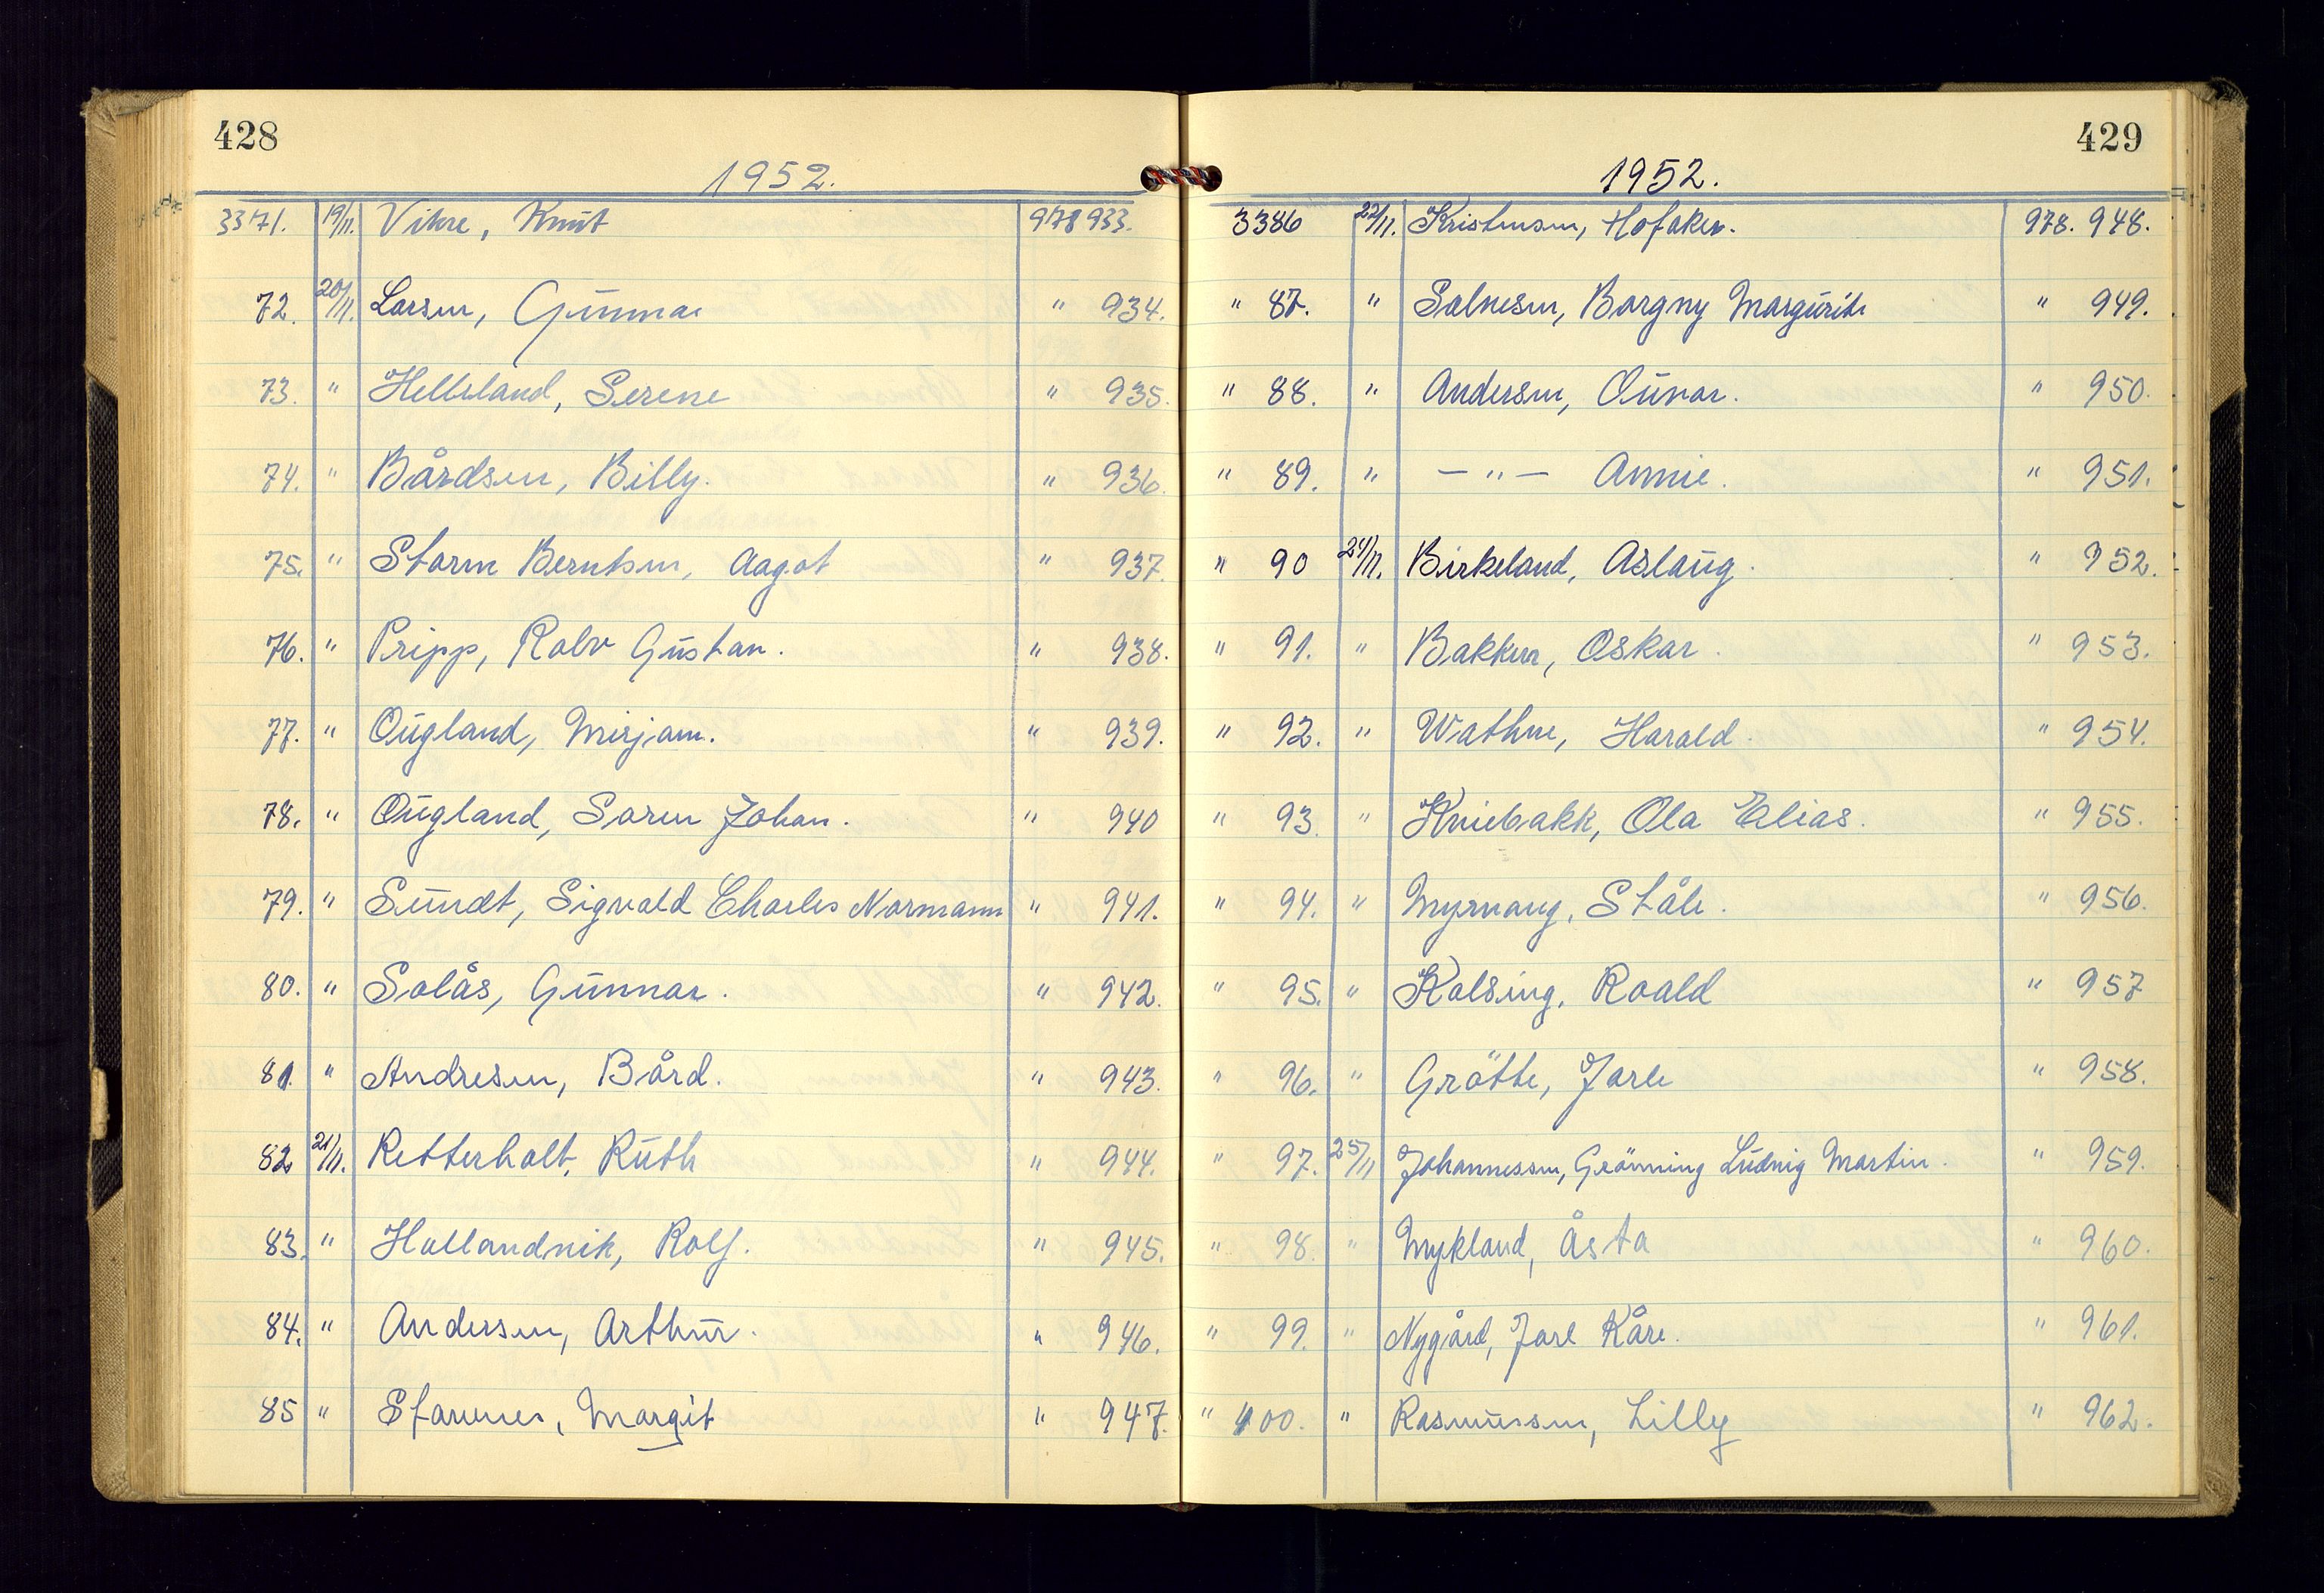 428
1952.
3371. 19/11. Vikre, Knut 978 933.
72. 20/11. Larsen, Gunnar " 934.
73. " Helleland, Serene " 935.
74. " Bårdsen, Billy. " 936.
75. " Storm Berntsen, Aagot " 937.
76. " Pripp, Rolv Gustav. " 938.
77. " Ougland, Mirjam. " 939.
78. " Ougland, Soren Johan. " 940
79. " Sundt, Sigvald Charles Normann " 941.
80. " Solås, Gunnar. " 942.
81. " Andresen, Bård. " 943.
82 21/11. Retterholt, Ruth " 944.
83. " Hollandvik, Rolf. " 945.
84. " Andersen, Arthur. " 946.
85 " Stamnes, Margit " 947.
429
1952.
3386 22/11. Kristensen, Hofaker. 978. 948.
" 87. " Salvesen, Borgny Margurite " 949.
" 88. " " Andersen, Ounar. " 950.
" 89. " — " — Annie. " 951.
" 90 24/11. Birkeland, Aslaug. " 952.
" 91. " Bakken, Oskar. " 953.
" 92. " Wathne, Harald. " 954.
" 93. " Kniebakk, Ola Elias. " 955.
" 94. " Myrvang, Ståle. " 956.
" 95. " Kolsing, Roald " 957
" 96. " Grötte, Jarle " 958.
" 97. 25/11 Johannessen, Grönning Ludvig Martin. " 959.
" 98. " Mykland, Åsta " 960.
" 99. " Nygård, Jarl Kåre. " 961.
" 400. " Rasmussen, Lilly " 962.